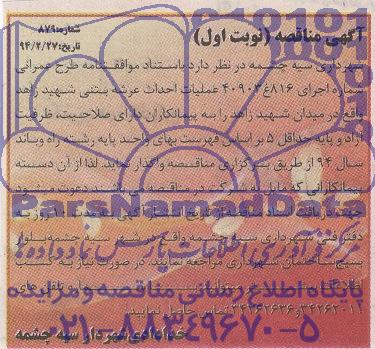 شماره: ۸۷۹
تاریخ: ۹۴/۲/۲۷
آگهی مناقصه (نوبت اول)
شهرداری سیه چشمه در نظر دارد باستناد موافقتنامه طرح عمرانی
شماره اجرای ۸۱۶غ۴۰۹۰۳ عملیات احداث عرشه بتنی شهید زاهد
واقع در میدان شهید زاهد را به پیمانکاران دارای صلاحیت، ظرفیت
آزاد و پایه حداقل ۵ بر اساس فهرست بهای واحد پایه رشته راه وباند
سال ۹۴ از طریق برگزاری مناقصه واگذار نماید. لذا از آن دسته
پیمانکارانی که مایل به شرکت در مناقصه می باشند دعوت میشود
جهت دریافت اسناد مناقصه از تاریخ انتشار آگهی به مدت ۱۰ روز به
دفتر فنی شهرداری سیه چشمه واقع در شهر سیه چشمه بلوار
بسیج ساختمان شهرداری مراجعه نمایند. در صورت نیاز به کسب
۳۴۲۶۲۰۱۲ و ۳۴۲۶۲۶۳۶ تماس حاصل نمایید.
خدادادی شهردار سیه چشمه
ParsNamadData
پایگاه اطلاع رسانی مناقصه و مزایده
۰۲۱-۸۸۳۴۹۶۷۰-۵